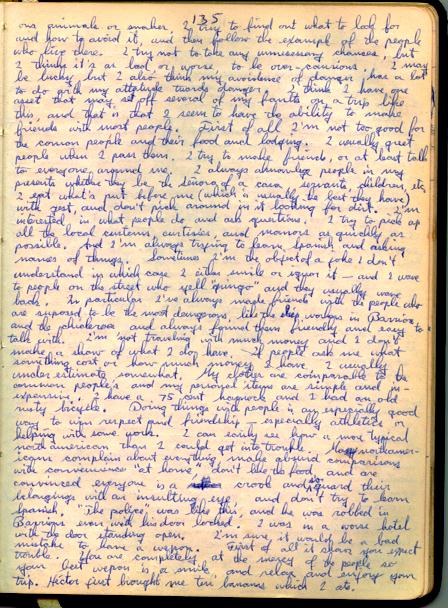 135
ous animals or snakes. I try to find out what to look for
and how to avoid it, and then follow the example of the people
who live there. I try not to take any unnecessary chances, but
I think it's as bad or worse to be over-cautious. I may
be lucky but I also think my avoidence of danger has a lot
to do with my attitude towards danger. I think I have one
asset that may off several of my faults on a trip like
this, and that is that I seem to have the ability to make
friends with most people. First of all I'm not too good for
the common people and their food and lodging. I usually greet
people when I pass them. I try to make friends, or at least talk
to everyone around me. I always acknowledge people in my
presents whether they be the Señora of a casa, servants, children, etc.
I eat what's put before me (which is usually the best they have)
with gest, and don't pick around in it looking for dirt. I'm
interested in what people do and ask questions. I try to pick up
all the local customs, curtisies, and manors as quickly as
possible. And I'm always trying to learn Spanish and asking
names of things. Sometimes I'm the object of a joke I don't
understand in which case I either smile or ignor it — and I wave
to people on the street who yell "gringo" and they usually wave
back. In particular I've always made friends with the people who
are suposed to be the most dangerous, like the workers in Barrios,
and the chicleros and always found them friendly and easy to
talk with. I'm not traveling with much money and I don't
make a show of what I do have. If people ask me what
something cost or how much money I have I usually
under estimate somewhat. My clothes are comparable to the
common people's and my personal items are simple and in-
expensive. I have a 75 cent hammock and I had an old
rusty bicycle. Doing things with people is an especially good
way to win respect and friendship – especially athletics or
helping with some work. I can easily see how a more typical
north american than I could get into trouble. Many northamer-
icans complain about everything, make absurd comparisons
with convenience "at home", don't like the food, and are
convinced everyone is a crook and so guard their
belongings with an insulting eye, and don't try to learn
Spanish. "The police" was like this, and he was robbed in
Barrios even with his door locked. I was in a worse hotel
with the door standing open. I'm sure it would be a bad
mistake to have a weapon. First of all it shows you expect
trouble. You are completely at the mercy of the people so
your best wepon is a smile, and relax and enjoy your
trip. Hector first brought me ten bananas which I ate.